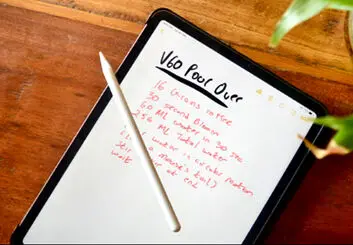 V60 Poor Over
16 Grams
30 second Bloom
60 ML water in 30 sec
256 ML Total water
water in circular motion
a mouse's tail)
wait at end